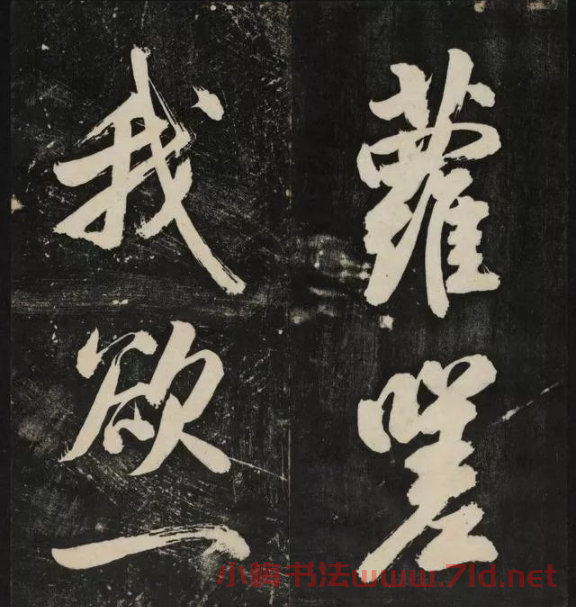 蘿嗟
我欲一
小梅书法www.7ld.net